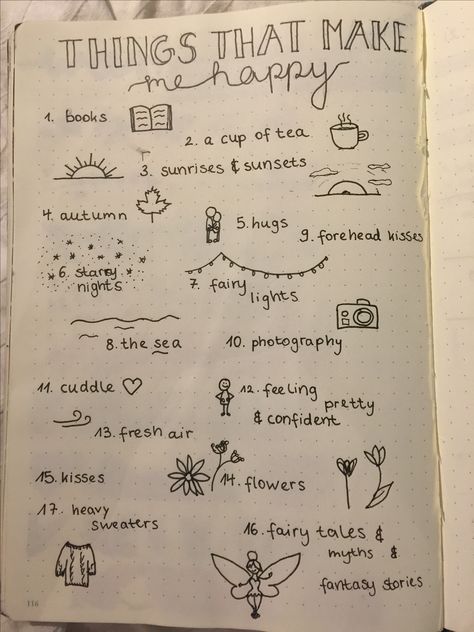 THINGS THAT MAKE
me happy
1. books
2. a cup of tea
3. sunrises & sunsets
4. autumn
5. hugs
9. forehead kisses
6. starry
nights
7. fairy
lights
8. the sea
10. photography
11. cuddle ♡
12. feeling
pretty
& confident
13. fresh air
15. kisses
14. flowers
17. heavy
sweaters
16. fairy tales &
myths &
fantasy stories
116